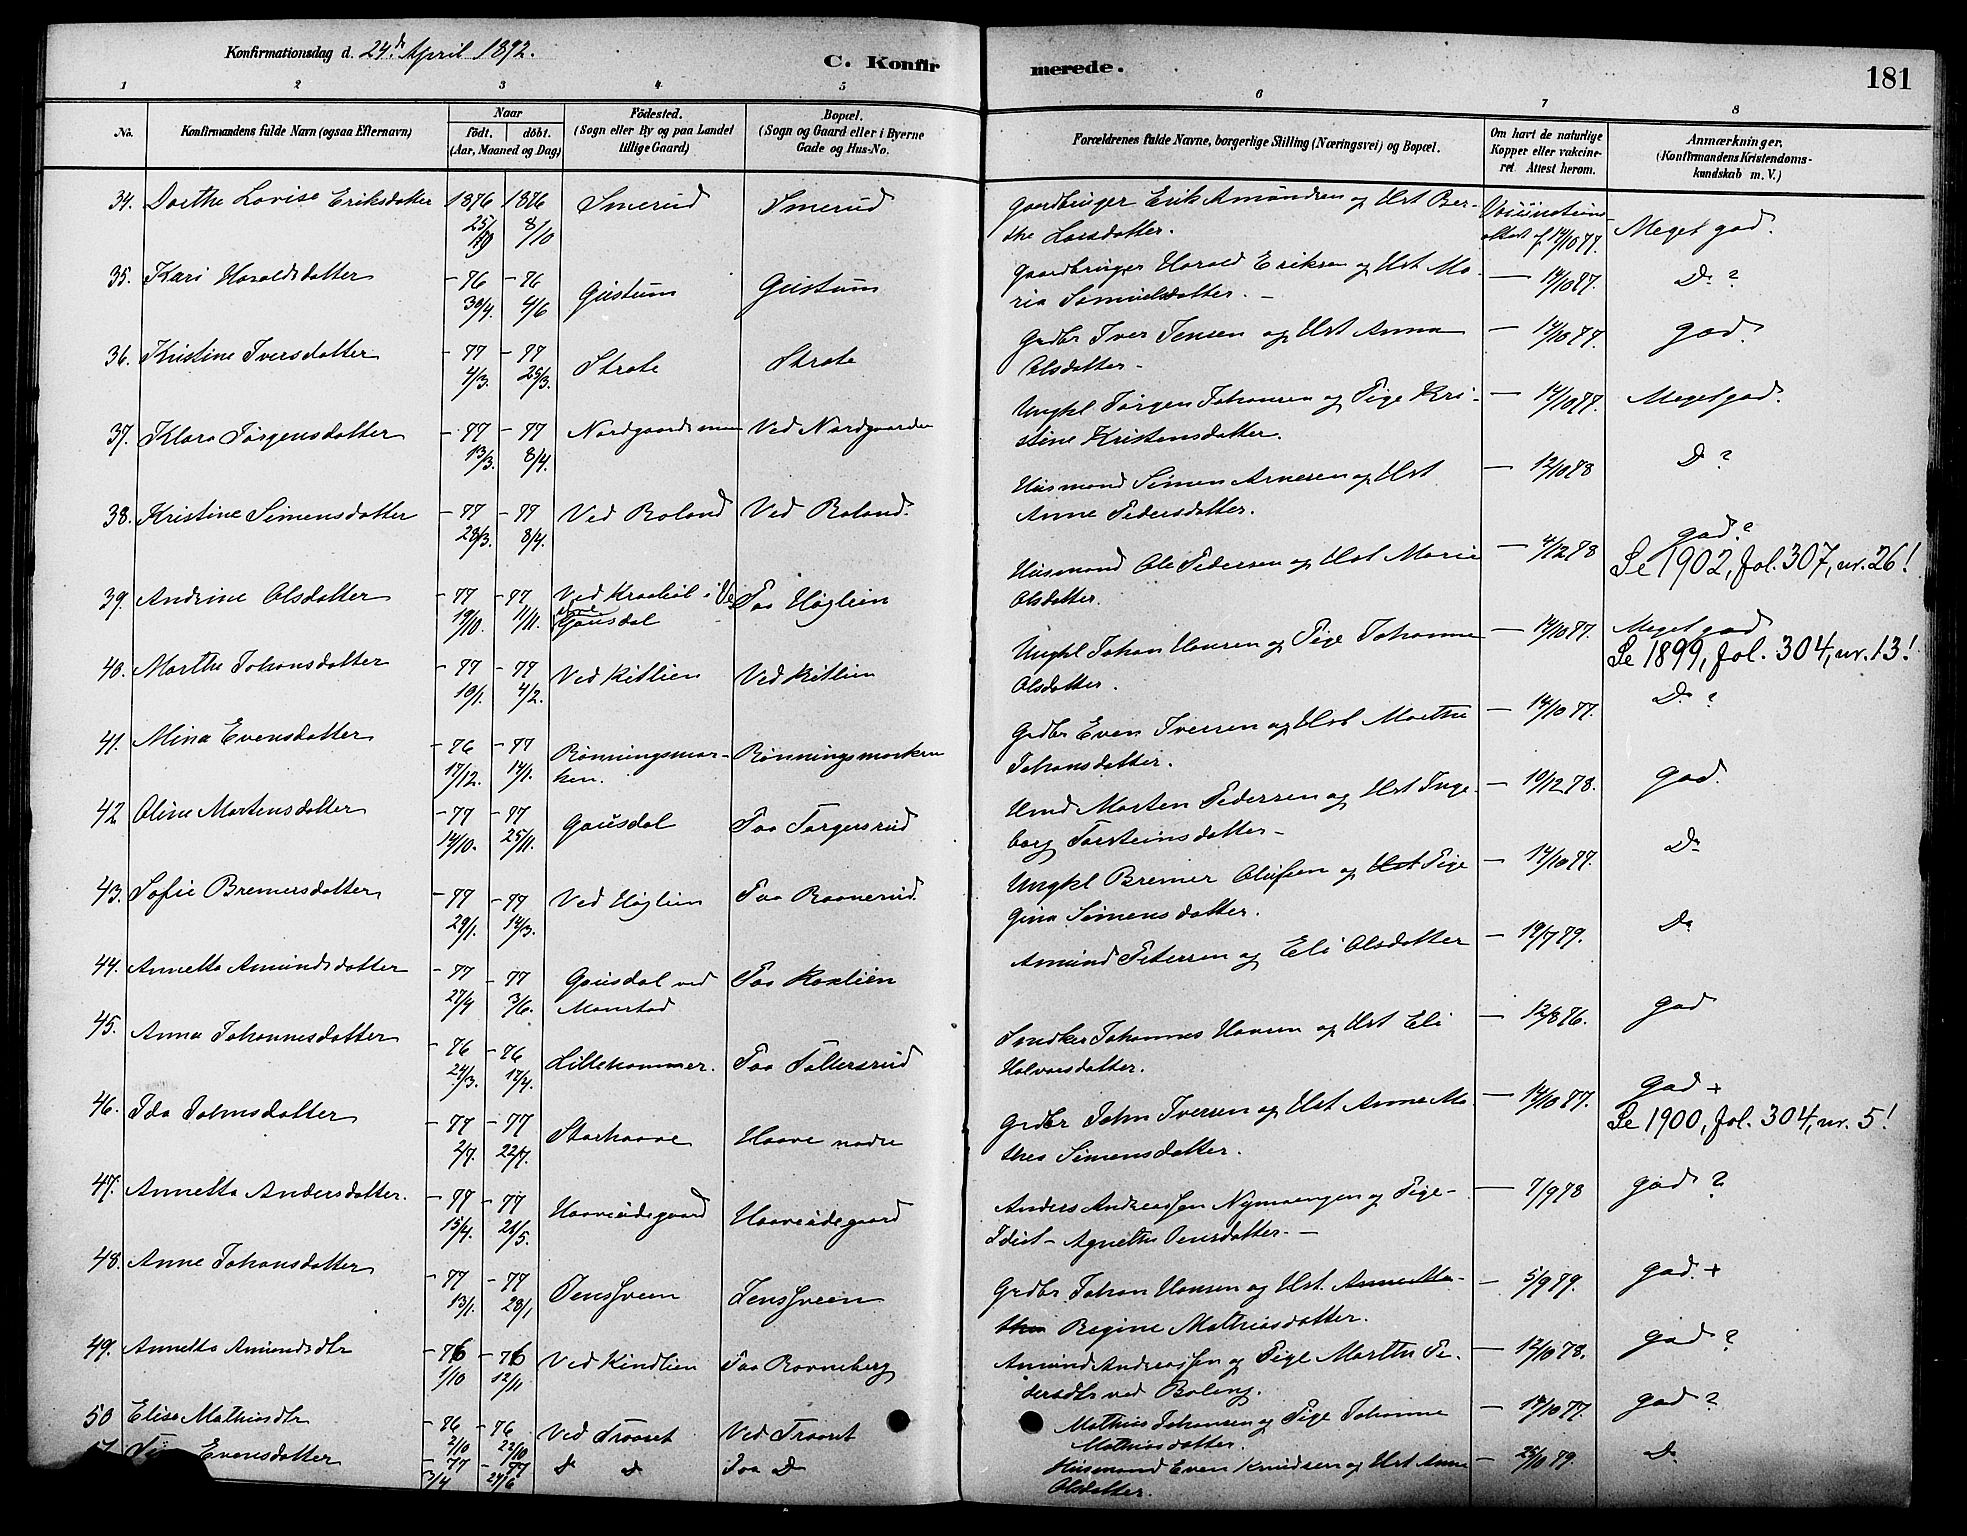 Konfirmationsdag d. 24de April 1892.
C. Konfirmerede.
181
1 2 3 4 5 6 7 8
No.
Konfirmandens fulde Navn (ogsaa Efternavn)
Naar
født. døbt.
(Aar, Maaned og Dag)
Fødested.
(Sogn eller By og paa Landet tillige Gaard)
Bopæl.
(Sogn og Gaard eller i Byerne Gade og Hus-No.
Forældrenes fulde Navne, borgerlige Stilling (Næringsvei) og Bopæl.
Om havt de naturlige Kopper eller vakcineret. Attest herom.
Anmærkninger.
(Konfirmandens Kristendomskundskab m. V.)
34. Dorthe Lovise Eriksdatter 1876 1876 Smerud Smerud Gaardbruger Erik Amundsen og Hst Ber-
8/10 the Larsdatter. 14/10 77. Meget god.
35. Kari Haraldsdatter - 76 - 76 Gustum Gustum Gaardbruger Harald Eriksen og Hst Ma-
30/4. 4/6 ria Samuelsdatter. - — 14/10 77. Do ?
36. Kristine Iversdatter - 77 - 77 Strate Strate Grdbr Iver Jensen og Hst Anna — 14/10 77. god.
4/3. 25/3. Olsdatter -
37. Klara Jørgensdatter - 77 - 77 Ved Nordgaarden Ungkl Jørgen Johansen og Pige Kri- — 14/10 77. Meget god.
13/3. 8/4. stine Kristensdatter.
38. Kristine Simensdatter - 77 - 77 Ved Roland Ved Roland. Husmand Simen Arnesen og Hst — 12/10 78 Do ?
28/3. 8/4. Anne Pedersdatter.
39. Andrine Olsdatter - 77 - 77 Paa Høglien Husmand Ole Pedersen og Hst Marie — 4/12 78 god ?
19/10. 11/11. Gausdal Olsdatter. Se 1902, fol. 307, nr. 26!
40. Marthe Johansdatter - 77 - 77 Ved Kitlien Ved Kitlien Ungkl Johan Hansen og Pige Johanne — 14/10 77. Meget god
19/1. 4/2. Olsdatter. Se 1899, fol. 304, nr. 13!
41. Mina Evensdatter - 76 - 77 Rønningsmar- Rønningsmarken Grdbr Even Iversen og Hst Marthe — 14/10 77. Do ?
17/12. 14/1. ken. Johansdatter.
42 Oline Mortensdatter - 77 - 77 Gausdal Paa Torgersrud Hmd Morten Pedersen og Hst Inge- — 19/12 78. god.
14/10. 25/11. borg Torsteinsdatter -
43. Sofie Bremersdatter - 77 - 77 Ved Høglien Paa Raanerud. Ungkl Bremer Olufsen og Hst Pige — 14/10 77. Do
29/1. 14/3. Gina Simensdatter.
44. Annetta Amundsdatter - 77 - 77 Gausdal ved Paa Roxlien Amund Petersen og Eli Olsdatter — 19/7 79. Do
27/4 3/6. Monstad
45. Anna Johannesdatter - 76 - 76 Lillehammer. Paa Tollersrud Johannes Hansen og Hst Eli — 12/8 76. god
24/3. 17/4. Halvorsdatter.
46. Ida Johnsdatter - 77 - 77 Storhaave Haave nedre Grdbr John Iversen og Hst Anne Ma- — 14/10 77. god +
2/7. 22/7. thea Simensdatter. Se 1900, fol. 304, nr. 5!
47. Annetta Andersdatter. - 77 - 77 Haaveødegaard Haaveødegaard Anders Andreassen Nymoengen og Pige- — 7/9 78 god ?
15/4. 21/5. Idiot - Agnethe Jensdatter. —
48. Anne Johansdatter - 77 - 77 Jenssveen Jenssveen Grdbr Johan Hansen og Hst. Anne Ma- — 5/9 79. god. +
13/1. 28/1 thea Regine Mathiasdatter.
49. Annetta Amundsdtr - 76 - 76 Ved Kindlien Paa Rovneberg Amund Andreassen og Pige Marthe Pe- — 12/10 78. god ?
1/10 12/11 dersdtr ved Boleng.
50 Elise Mathiasdtr - 76 - 76 Ved Traaset Ved Traaset Mathias Johansen og Pige Johanne — 14/10 77. god ?
2/10 22/10 Mathiasdatter.
Evensdatter - 77 - 77 Do Do Paa Do Husmand Even Knudsen og Hst Anne — 25/10 79. Do
3/4 24/6 Olsdatter.